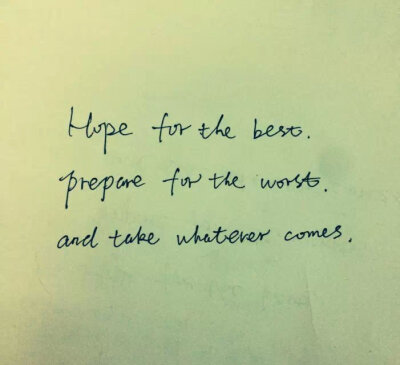 Hope for the best.
prepare for the worst.
and take whatever comes.